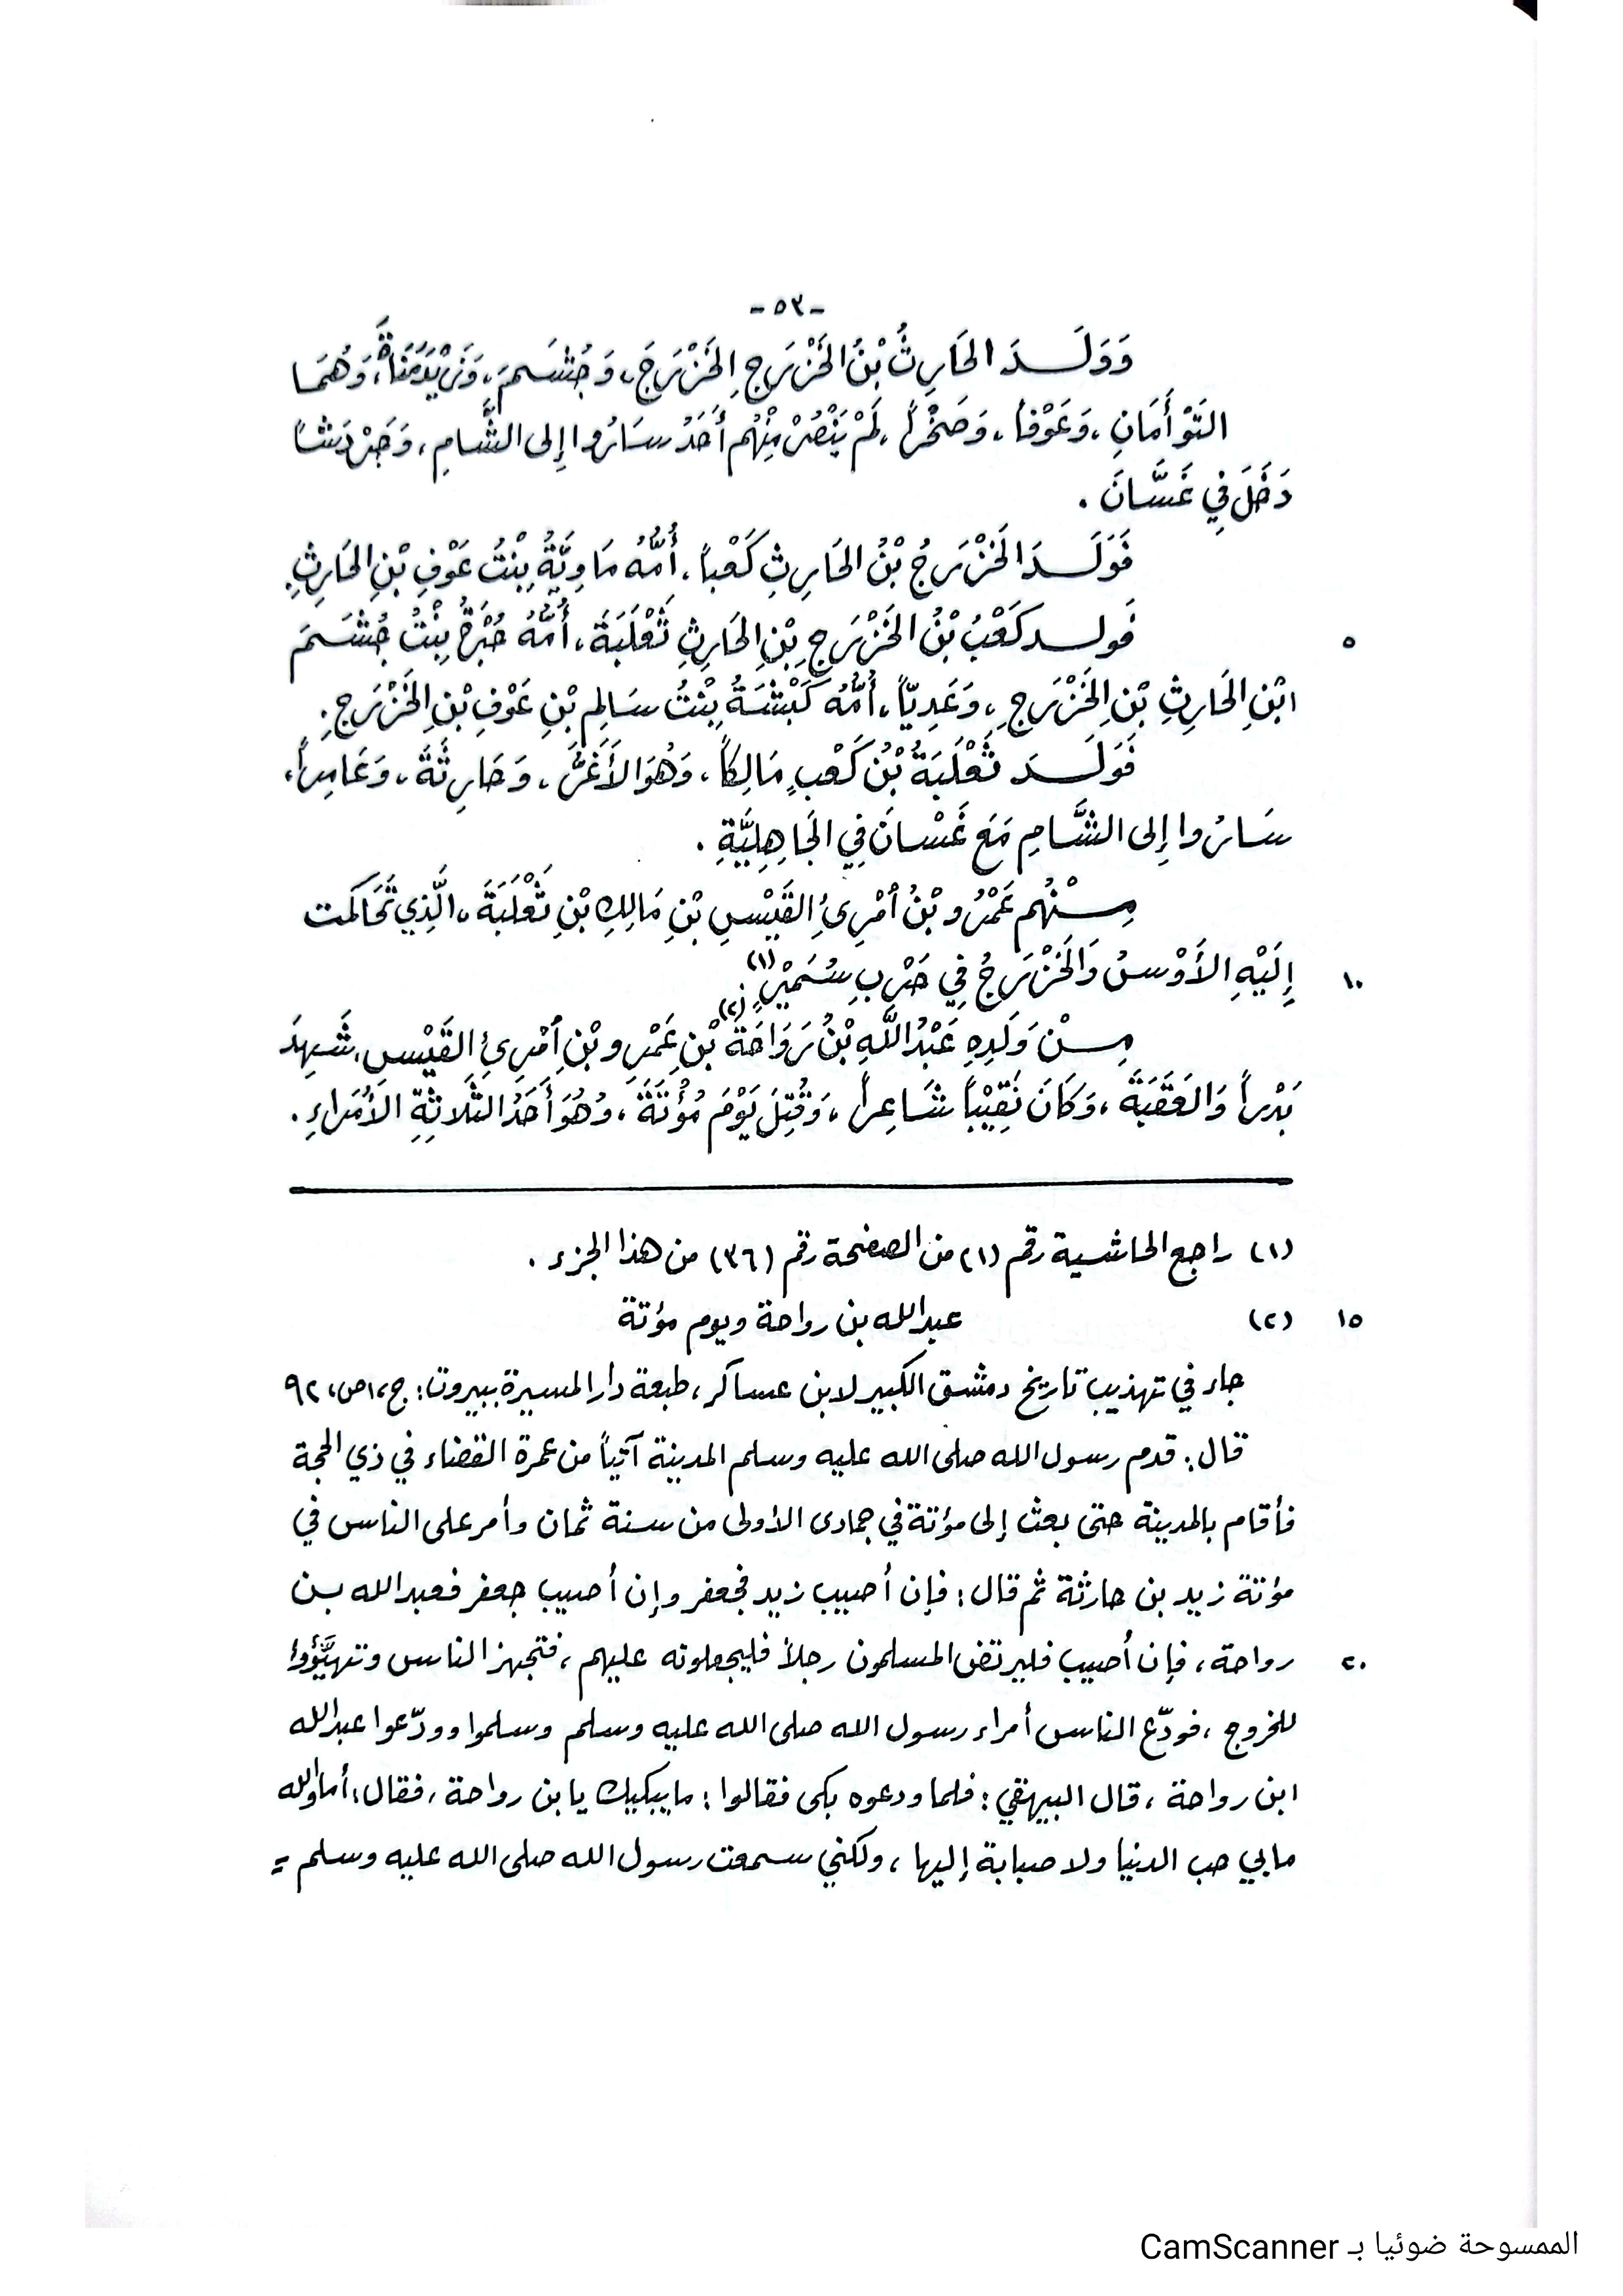 -٥٣-
وَوَلَــدَ الحَارِثُ بْنُ الخَزْرَجِ الخَزْرَجَ، وَجُشَــمَ، وَزَيْدَ مَنَاةَ، وَهُمَــا
التَّوْأَمَانِ، وَعَوْفاً، وَصَخْراً، لَمْ يَنْصُرْ مِنْهُم أَحَدٌ سَارُوا إِلى الشَّامِ، وَجَرْدَشــاً
دَخَلَ فِي غَسَّانَ .
فَوَلَــدَ الخَزْرَجُ بْنُ الحَارِثِ كَعْباً، أُمُّهُ مَاوِيَّةُ بِنْتُ عَوْفِ بْنِ الحَارِثِ.
٥ فَولــد كَعْبُ بْنُ الخَزْرَجِ بْنِ الحَارِثِ ثَعْلَبَةَ، أُمُّهُ خُبْرَةُ بِنْتُ جُشَــمَ
ابْنِ الحَارِثِ بْنِ الخَزْرَجِ، وَعَدِيّاً، أُمُّهُ كَبْشَةُ بِنْتُ سَالِمِ بْنِ عَوْفِ بْنِ الخَزْرَجِ.
فَوَلَــدَ ثَعْلَبَةُ بْنُ كَعْبٍ مَالِكاً، وَهُوَ الأَغَرُّ، وَحَارِثَةَ، وَعَامِراً،
سَارُوا إِلى الشَّامِ مَعَ غَسْانَ فِي الجَاهِلِيَّةِ .
مِــنْهُم عَمْرُو بْنُ أمْرِىءِ القَيْسِ بْنِ مَالِكِ بْنِ ثَعْلَبَةَ، الَّذِي تَحَاكَمت
١٠ إِلَيْهِ الأَوْسُ وَالخَزْرَجُ فِي حَرْبِ سُمَيْرٍ (١)
مِــنْ وَلَدِهِ عَبْدُ اللَّهِ بْنُ رَوَاحَةَ (٢) بْنِ عَمْرِو بْنِ أمْرِىءِ القَيْسِ، شَهِدَ
بَدْراً وَالعَقَبَةَ، وَكَانَ نَقِيْباً شَاعِراً، وَقُتِلَ يَوْمَ مُؤْتَةَ، وَهُوَ أَحَدُ الثَلاثِةِ الأُمَراءِ .
(١) راجع الحاشية رقم (١) من الصفحة رقم (٣٦) من هذا الجزء .
١٥ (٢) عبد الله بن رواحة ويوم مؤتة
جاء في تهذيب تاريخ دمشق الكبير لابن عساكر، طبعة دار المسيرة ببيروت: ج،١ ص، ٩٢
قال: قدم رسول الله صلى الله عليه وسلم المدينة آتياً من عمرة القضاء في ذي الحجة
فأقام بالمدينة حتى بعث إلى مؤتة في جمادى الأولى من سنة ثمان وأمر على الناس في
مؤتة زيد بن حارثة ثم قال: فإن أصيب زيد فجعفر وإن أصيب جعفر فعبد الله بــن
٢٠ رواحة، فإن أُصيب فليرتض المسلمون رجلاً فليجعلونه عليهم، فتجهز الناس وتهيَّؤوا
للخروج، فودّع الناس أمراء رسول الله صلى الله عليه وسلم وسلموا وودّعوا عبدالله
ابن رواحة، قال البيهقي: فلما ودعوه بكى فقالوا: ما يبكيك يا بن رواحة، فقال: أما والله
مابي حب الدنيا ولا صبابة إليها، ولكني سمعت رسول الله صلى الله عليه وسلم =
الممسوحة ضوئيا بـ CamScanner